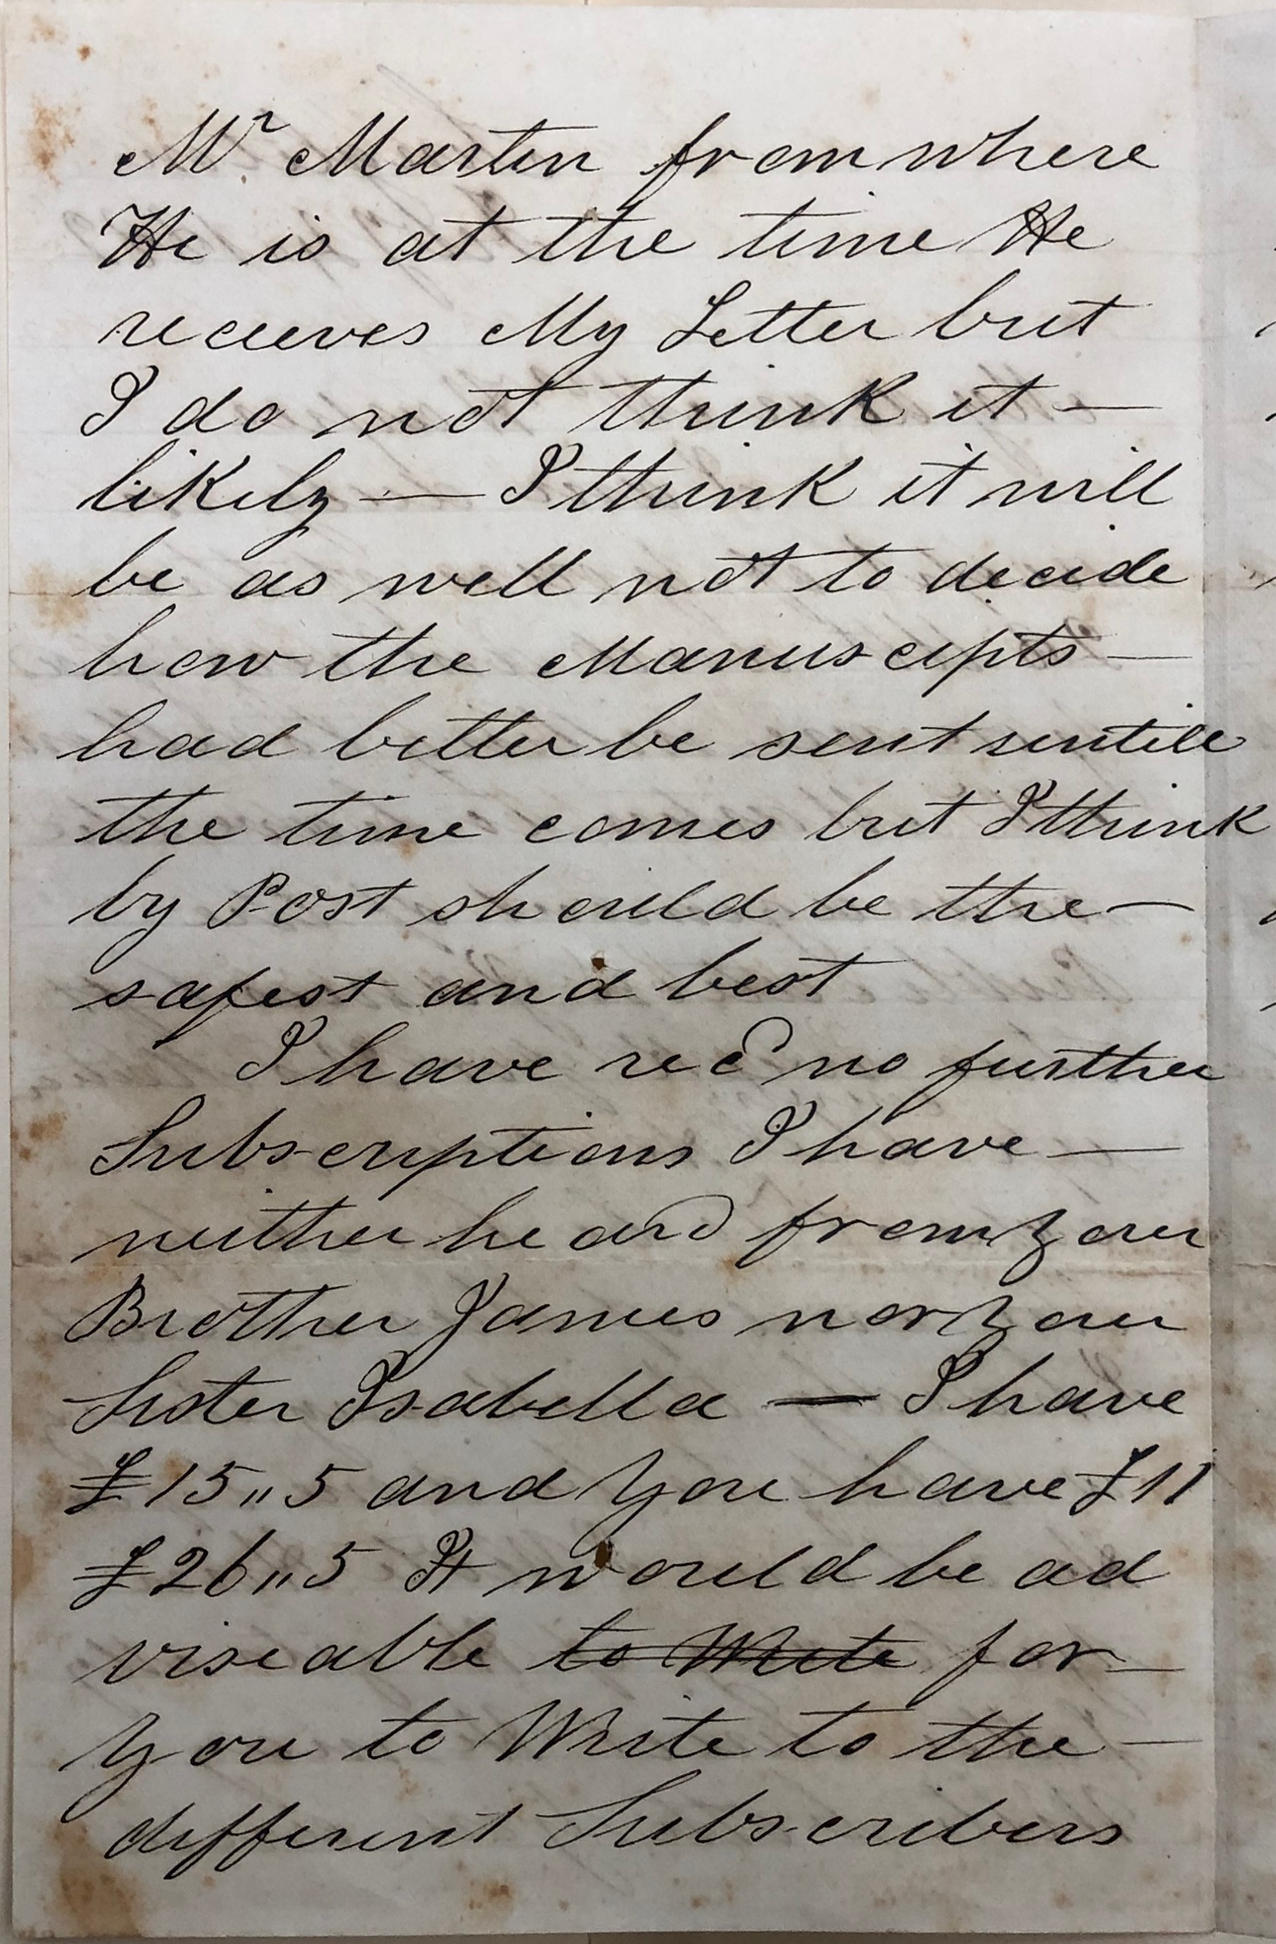 Mr Martin from where
He is at the time He
receives My Letter but
I do not think it —
likely — I think it will
be as well not to decide
how the Manuscipts —
had better be sent untill
the time comes but I think
by Post should be the —
safest and best
I have recd no further
Subscriptions I have —
neither heard from your
Brother James nor your
Sister Isabella — I have
£15,,5 and you have £11
£26,,5 It would be ad
viseable to Write for —
you to Write to the —
different Subscribers